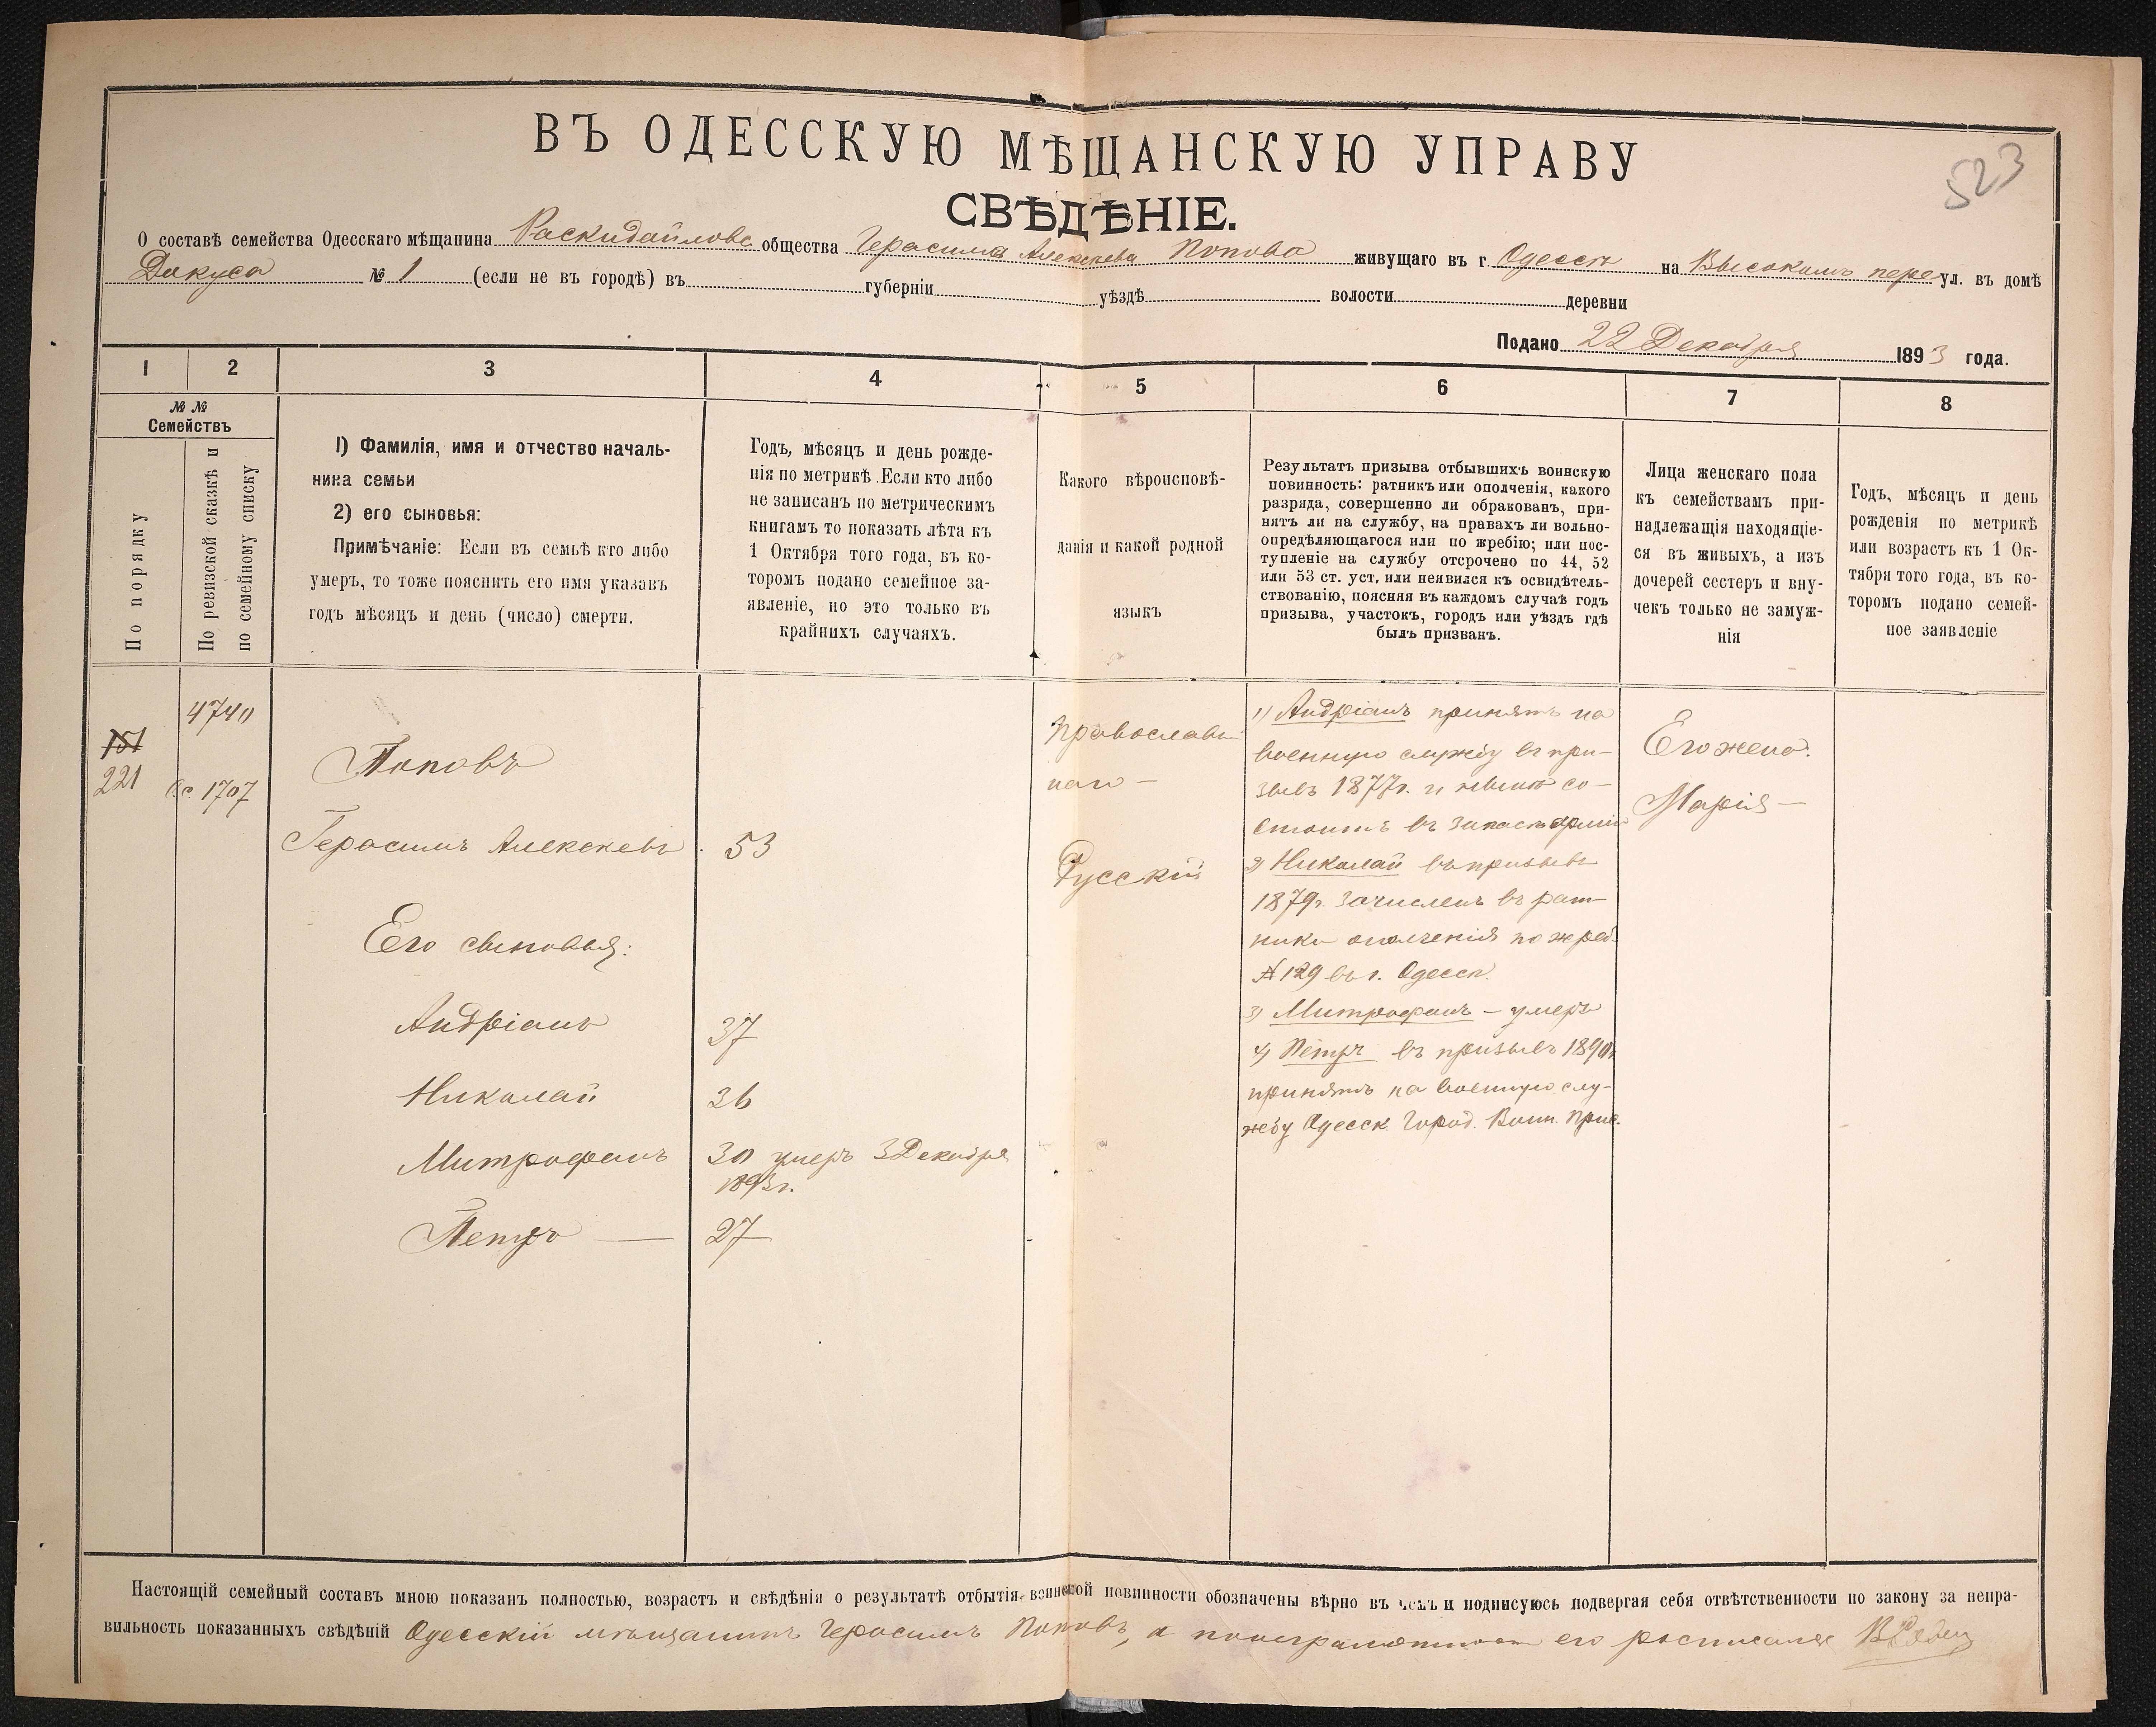 523
ВЪ ОДЕССКУЮ МѢЩАНСКУЮ УПРАВУ
СВѢДѢНІЕ.
О составѣ семейства Одесскаго мѣщанина Раскидайлова общества Герасима Алексѣева Попова живущаго въ г. Одессѣ на Высокомъ пере ул. въ домѣ
Дакуса № 1 (если не въ городѣ) въ губерніи уѣздѣ волости деревни
Подано 22 Декабря 1893 года.
1 2 3 4 5 6 7 8
№ №
Семействъ
По порядку
По ревизской сказкѣ и
по семейному списку
1) Фамилія, имя и отчество началь-
ника семьи
2) его сыновья:
Примѣчаніе: Если въ семьѣ кто либо
умеръ, то тоже пояснить его имя указавъ
годъ мѣсяцъ и день (число) смерти.
Годъ, мѣсяцъ и день рожде-
нія по метрикѣ. Если кто либо
не записанъ по метрическимъ
книгамъ то показать лѣта къ
1 Октября того года, въ ко-
торомъ подано семейное за-
явленіе, но это только въ
крайнихъ случаяхъ.
Какого вѣроисповѣ-
данія и какой родной
языкъ
Результатъ призыва отбывшихъ воинскую
повинность: ратникъ или ополченія, какого
разряда, совершенно ли обракованъ, при-
нятъ ли на службу, на правахъ ли вольно-
опредѣляющагося или по жребію; или пос-
тупленіе на службу отсрочено по 44, 52
или 53 ст. уст, или неявился къ освидѣтель-
ствованію, поясняя въ каждомъ случаѣ годъ
призыва, участокъ, городъ или уѣздъ гдѣ
былъ призванъ.
Лица женскаго пола
къ семействамъ при-
надлежащія находящіе-
ся въ живыхъ, а изъ
дочерей сестеръ и вну-
чекъ только не замуж-
нія
Годъ, мѣсяцъ и день
рожденія по метрикѣ
или возрастъ къ 1 Ок-
тября того года, въ ко-
торомъ подано семей-
ное заявленіе
151
221
4740
1707
Поповъ
Герасимъ Алексѣевъ 53
Его сыновья:
Андріанъ 37
Николай 36
Митрофанъ 30 умеръ 3 Декабря
1893 г.
Петръ — 27
Православ
наго —
Русскій
1) Андріанъ принятъ на
военную службу въ при-
зывъ 1877 г. и нынѣ со-
стоитъ въ запасѣ арміи
2) Николай въ призывъ
1879 г. зачисленъ въ рат-
ники ополченія по жреб.
№ 129 въ г. Одессѣ.
3) Митрофанъ — умеръ
4) Петръ въ призывъ 1890 г.
принятъ на военную слу-
жбу Одесск. Город. Воин. Прис.
Его жена:
Марія —
Настоящій семейный составъ мною показанъ полностью, возрастъ и свѣдѣнія о результатѣ отбытія воинской повинности обозначены вѣрно въ чемъ и подписуюсь подвергая себя отвѣтственности по закону за непра-
вильность показанныхъ свѣдѣній Одесскій мѣщанинъ Герасимъ Поповъ, а по неграмотности его росписался